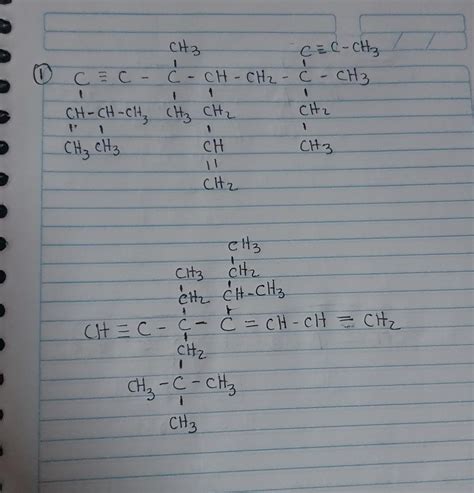 CH3 C ≡ C - CH3
① C ≡ C - C - CH - CH2 - C - CH3
CH - CH - CH3 CH3 CH2 CH2
CH3 CH3 CH CH3
CH2
CH3
CH3 CH2
CH2 CH - CH3
CH ≡ C - C - C = CH - CH = CH2
CH2
CH3 - C - CH3
CH3